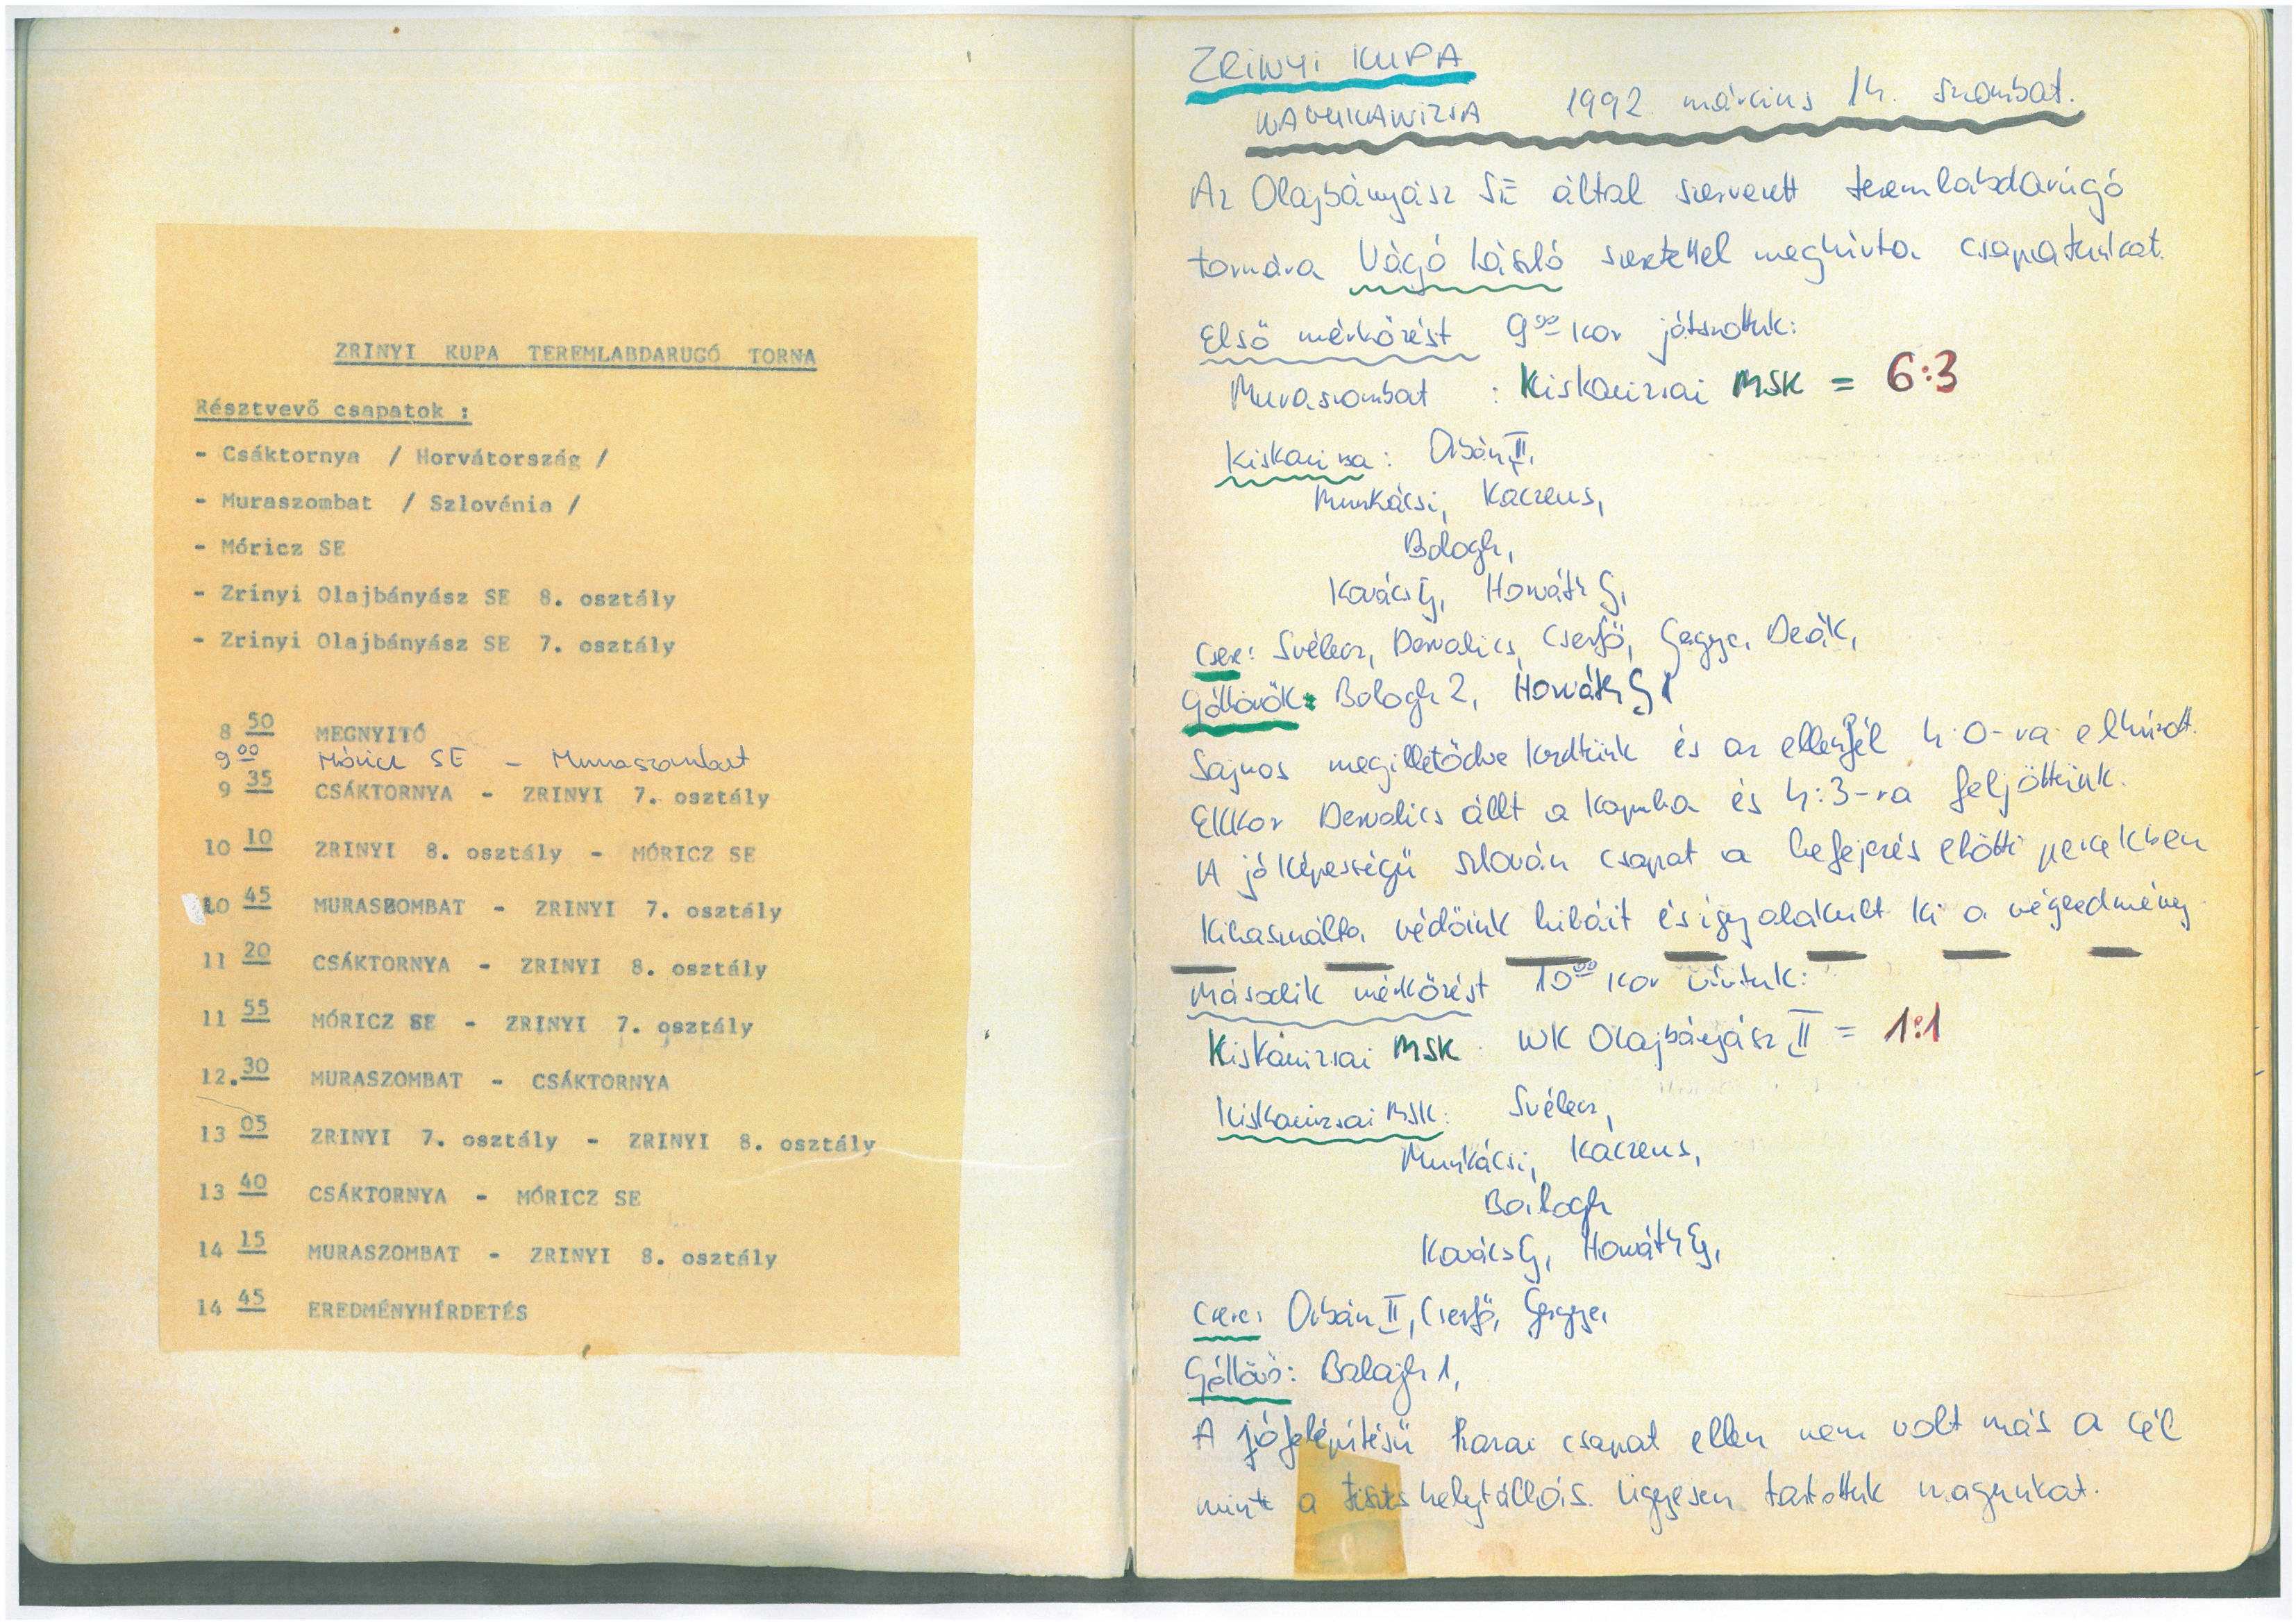 ZRINYI KUPA TEREMLABDARUGÓ TORNA
Résztvevő csapatok :
- Csáktornya / Horvátország /
- Muraszombat / Szlovénia /
- Móricz SE
- Zrínyi Olajbányász SE 8. osztály
- Zrinyi Olajbányász SE 7. osztály
8 50 MEGNYITÓ
9 00 Móricz SE - Muraszombat
9 35 CSÁKTORNYA - ZRINYI 7. osztály
10 10 ZRINYI 8. osztály - MÓRICZ SE
10 45 MURASZOMBAT - ZRINYI 7. osztály
11 20 CSÁKTORNYA - ZRINYI 8. osztály
11 55 MÓRICZ SE - ZRINYI 7. osztály
12.30 MURASZOMBAT - CSÁKTORNYA
13 05 ZRINYI 7. osztály - ZRINYI 8. osztály
13 40 CSÁKTORNYA - MÓRICZ SE
14 15 MURASZOMBAT - ZRINYI 8. osztály
14 45 EREDMÉNYHÍRDETÉS
ZRINYI KUPA
NAGYKANIZSA 1992. március 14. szombat.
Az Olajbányász SE által szervezett teremlabdarúgó
tornára Vágó László szeretettel meghívta csapatunkat.
Első mérkőzést 9 00 kor játszottuk:
Muraszombat : Kiskanizsai MSK = 6:3
Kiskanizsa: Orbán II,
Munkácsi, Kaczeus,
Balogh,
Kovács G, Horváth G,
Csere: Svélecz, Dervalics, Cserfő, Gegye, Deák,
Góllövők: Balogh 2, Horváth G 1
Sajnos megilletődve kezdtünk és az ellenfél 4:0-ra elhúzott.
Ekkor Dervalics állt a kapuba és 4:3-ra feljöttünk.
A jóképességű szlován csapat a befejezés előtti percekben
kihasználta védőink hibáit és így alakult ki a végeredmény.
Második mérkőzést 10 00 kor vívtuk:
Kiskanizsai MSK : NK Olajbányász II = 1:1
Kiskanizsai MSK: Svélecz,
Munkácsi, Kaczeus,
Balogh
Kovács G, Horváth G,
Csere: Orbán II, Cserfő, Gegye,
Góllövő: Balogh 1,
A jófelépítésű hazai csapat ellen nem volt más a cél
mint a tisztes helytállás. Ügyesen tartottuk magunkat.